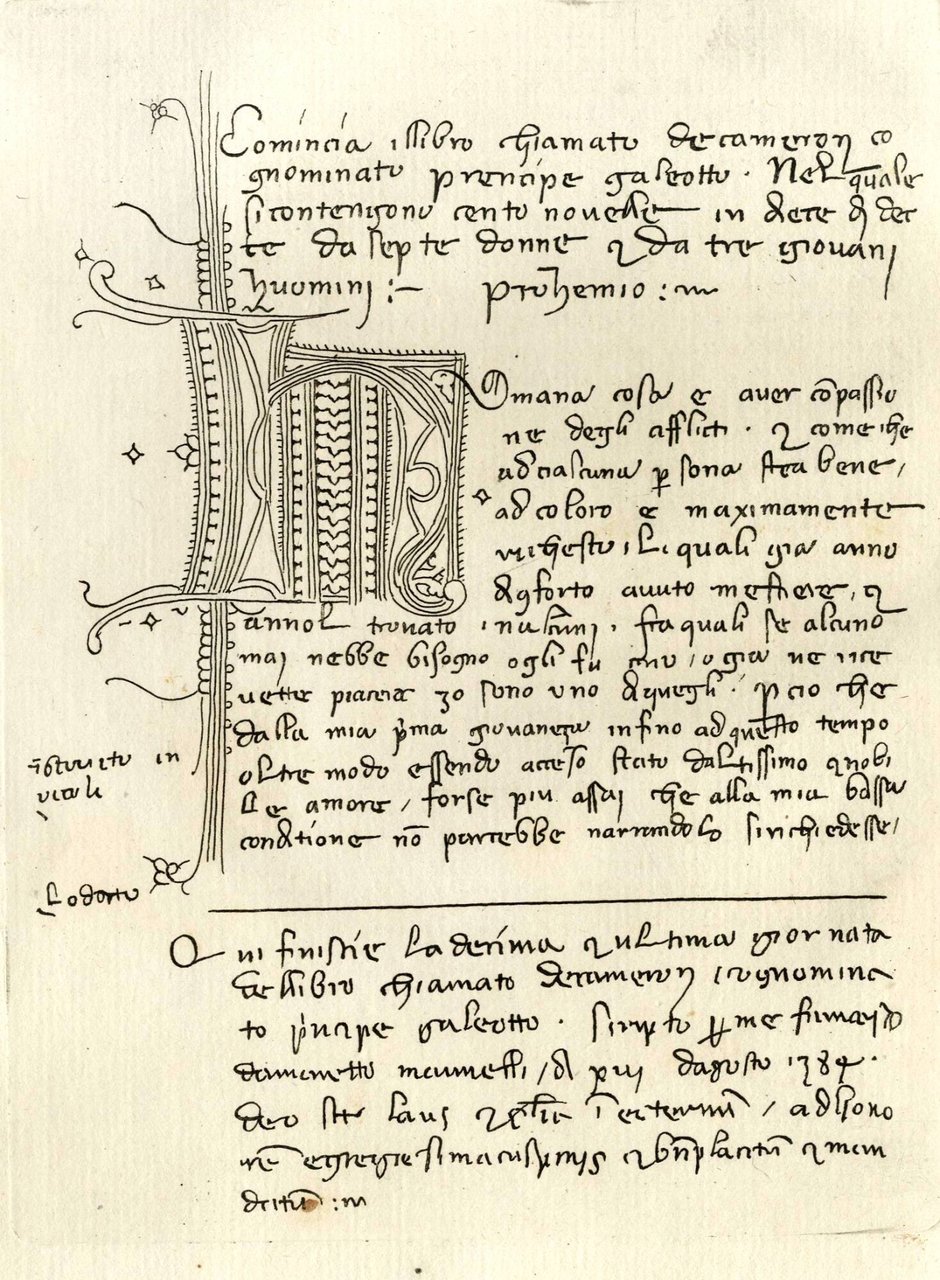 Comincia illibro chiamato decameron co
gnominato prencipe galeotto . Nel quale
si contengono cento novelle in diece di dec
te da septe donne & da tre giovani
huomini :~ prohemio :~
Umana cosa e aver cōpassio
ne degli afflicti . & come che
ad ciascuna p̱sona stea bene /
ad coloro e maximamente
richesto / li quali gia anno
di cōforto avuto mestiere , &
annol trovato inalcuni . fra quali se alcuno
mai nebbe bisogno ogli fu caro / o gia ne rice
vette piacere io sono uno di quegli . p̱cio che
dalla mia p̍ma giovaneça infino ad questo tempo
oltre modo essendo acceso stato daltissimo & nobi
le amore / forse piu assai che alla mia bassa
conditione nō parrebbe narrandolo sirichiedesse /
Qui finiscie la decima & ultima giornata
dellibro chiamato decameron / cognomina
to p̍ncipe galeotto . scripto p̱ me
mannelli / di xiij dagosto 1384 .
deo laus & ī eternū / ad hono
rē & bn̄placitū & man
datū :~